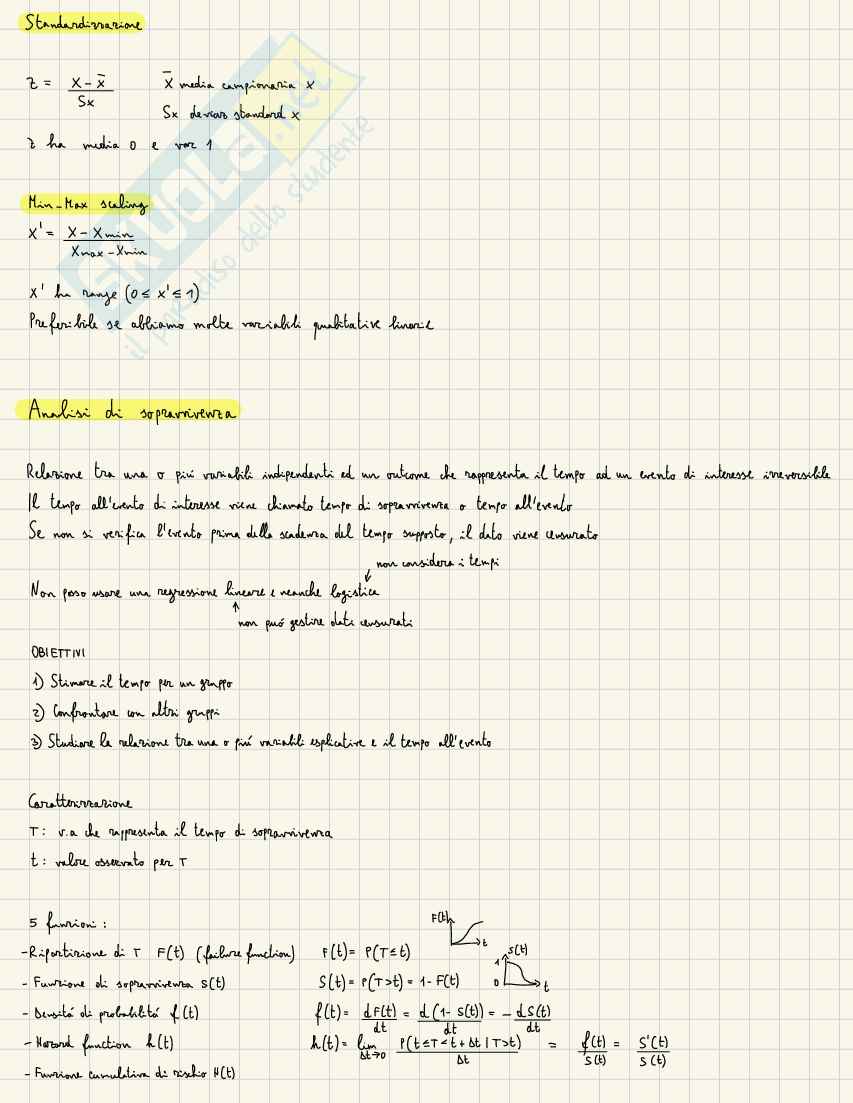 Standardizzazione
Z = (X - x̄) / Sx    x̄ media campionaria x
Sx deviaz standard x
Z ha media 0 e var 1
Min-Max scaling
X' = (X - Xmin) / (Xmax - Xmin)
X' ha range (0 ≤ x' ≤ 1)
Preferibile se abbiamo molte variabili qualitative binarie
Analisi di sopravvivenza
Relazione tra una o più variabili indipendenti ed un outcome che rappresenta il tempo ad un evento di interesse irreversibile
Il tempo all'evento di interesse viene chiamato tempo di sopravvivenza o tempo all'evento
Se non si verifica l'evento prima della scadenza del tempo supposto, il dato viene censurato
non considera i tempi
Non posso usare una regressione lineare e neanche logistica
non può gestire dati censurati
OBIETTIVI
1) Stimare il tempo per un gruppo
2) Confrontare con altri gruppi
3) Studiare la relazione tra una o più variabili esplicative e il tempo all'evento
Caratterizzazione
T: v.a che rappresenta il tempo di sopravvivenza
t: valore osservato per T
5 funzioni:    F(t)    t
- Ripartizione di T F(t) (failure function)    F(t) = P(T ≤ t)    S(t)
- Funzione di sopravvivenza S(t)    S(t) = P(T > t) = 1 - F(t)    1    0    t
- Densità di probabilità f(t)    f(t) = dF(t)/dt = d(1 - S(t))/dt = - dS(t)/dt
- Hazard function h(t)    h(t) = lim Δt→0 P(t ≤ T < t + Δt | T > t) / Δt = f(t)/S(t) = S'(t)/S(t)
- Funzione cumulativa di rischio H(t)
SKUOLA.net
il paradiso dello studente